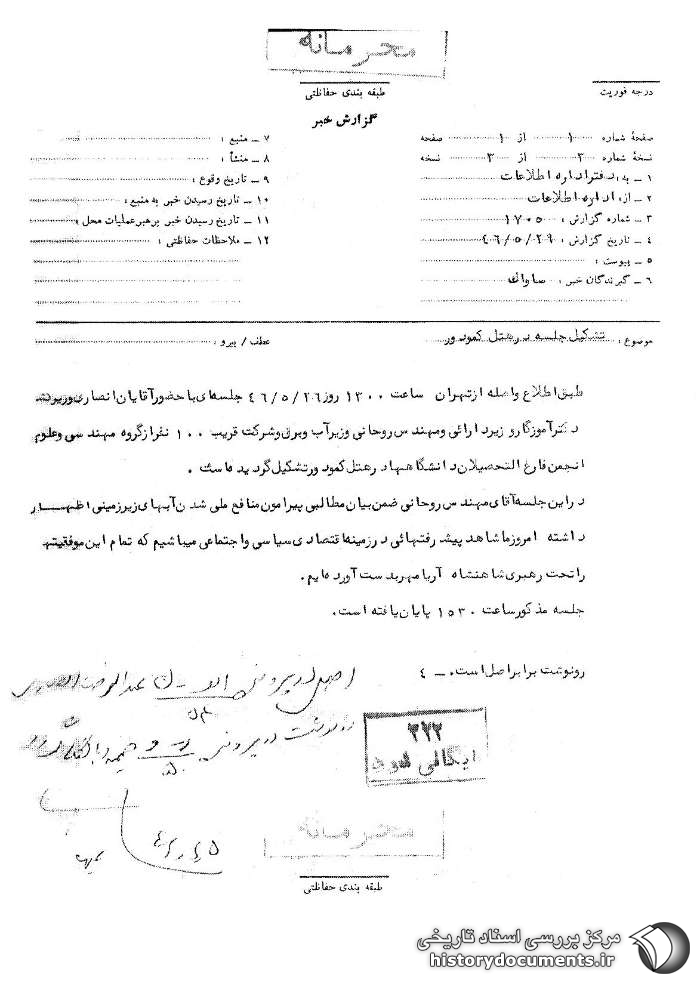 محرمانه
طبقه بندی حفاظتی
درجه فوریت
گزارش خبر
صفحهٔ شماره ۱ از ۱ صفحه
نسخهٔ شماره ۳ از ۳ نسخه
۱ ـ به: دفتر اداره اطلاعات
۲ ـ از: اداره اطلاعات
۳ ـ شماره گزارش: ۱۷۰۵
۴ ـ تاریخ گزارش: ۴۶/۵/۲۹
۵ ـ پیوست:
۶ ـ گیرندگان خبر: ساواک
۷ ـ منبع:
۸ ـ منشأ:
۹ ـ تاریخ وقوع:
۱۰ ـ تاریخ رسیدن خبر به منبع:
۱۱ ـ تاریخ رسیدن خبر برهبر عملیات محل:
۱۲ ـ ملاحظات حفاظتی:
موضوع: تشکیل جلسه در هتل کمودور
عطف / پیرو:
طبق اطلاع واصله از تهران ساعت ۱۳۰۰ روز ۴۶/۵/۲۶ جلسه‌ای با حضور آقایان انصاری وزیر
دکتر آموزگار وزیر دارائی و مهندس روحانی وزیر آب و برق و شرکت قریب ۱۰۰ نفر از گروه مهندسی و علوم
انجمن فارغ التحصیلان دانشگاهها در هتل کمودور تشکیل گردیده است.
در این جلسه آقای مهندس روحانی ضمن بیان مطالبی پیرامون منافع ملی شدن آبهای زیرزمینی اظهار
داشته امروز ما شاهد پیشرفتهائی در زمینه اقتصادی سیاسی و اجتماعی میباشیم که تمام این موفقیتها
را تحت رهبری شاهنشاه آریامهر بدست آورده‌ایم.
جلسه مذکور ساعت ۱۵۳۰ پایان یافته است.
رونوشت برابر اصل است. ـ ۴
اصل در پرونده
رونوشت در پرونده
۳۲۲
بایگانی شود
محرمانه
طبقه بندی حفاظتی
مرکز بررسی اسناد تاریخی
historydocuments.ir